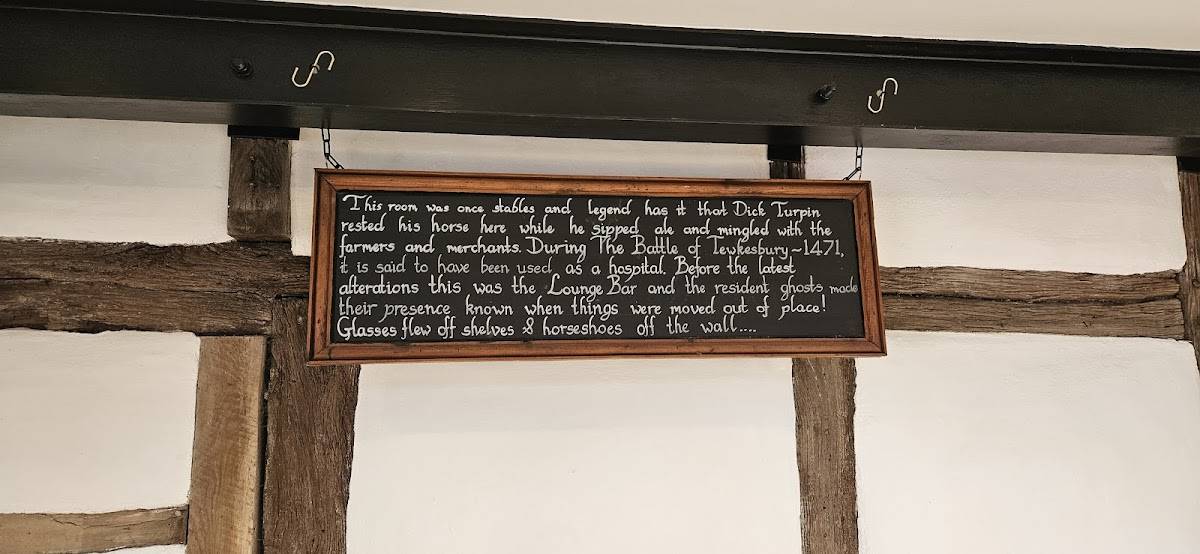 This room was once stables and legend has it that Dick Turpin
rested his horse here while he sipped ale and mingled with the
farmers and merchants. During The Battle of Tewkesbury~1471,
it is said to have been used as a hospital. Before the latest
alterations this was the Lounge Bar and the resident ghosts made
their presence known when things were moved out of place!
Glasses flew off shelves & horseshoes off the wall....